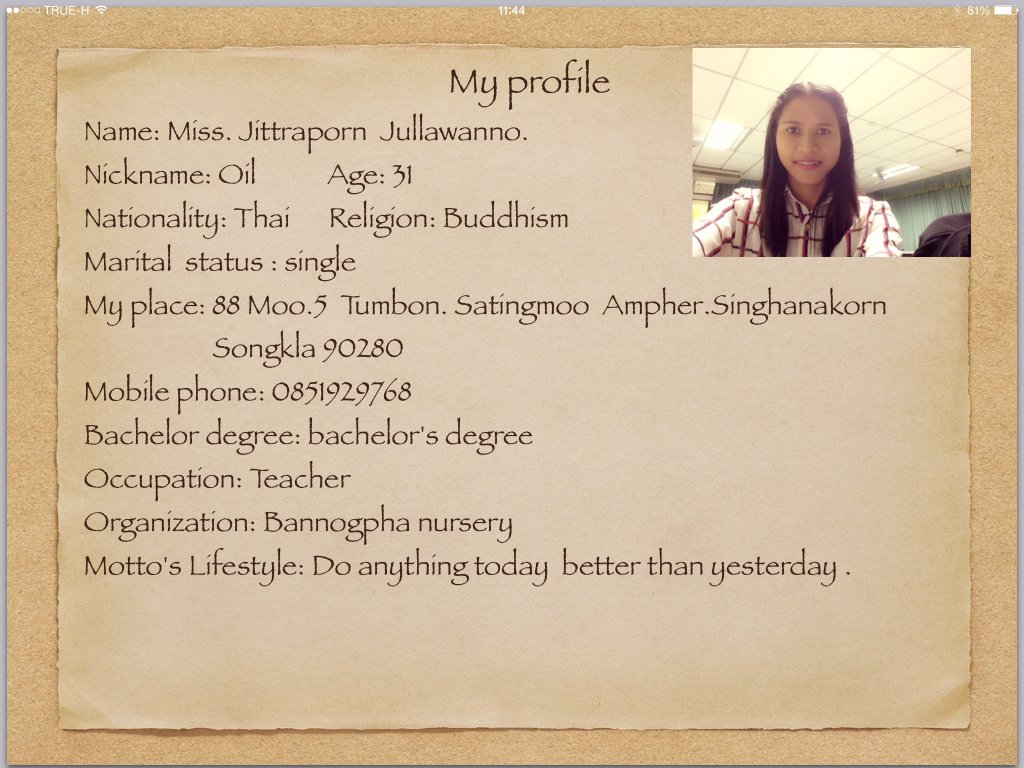 TRUE-H 11:44 81%
My profile
Name: Miss. Jittraporn Jullawanno.
Nickname: Oil Age: 31
Nationality: Thai Religion: Buddhism
Marital status : single
My place: 88 Moo.5 Tumbon. Satingmoo Ampher.Singhanakorn
Songkla 90280
Mobile phone: 0851929768
Bachelor degree: bachelor's degree
Occupation: Teacher
Organization: Bannogpha nursery
Motto's Lifestyle: Do anything today better than yesterday .